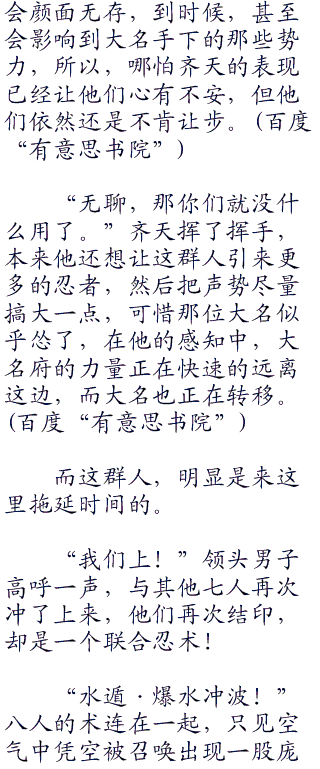 会颜面无存，到时候，甚至
会影响到大名手下的那些势
力，所以，哪怕齐天的表现
已经让他们心有不安，但他
们依然还是不肯让步。(百度
“有意思书院”)
“无聊，那你们就没什
么用了。”齐天挥了挥手，
本来他还想让这群人引来更
多的忍者，然后把声势尽量
搞大一点，可惜那位大名似
乎怂了，在他的感知中，大
名府的力量正在快速的远离
这边，而大名也正在转移。
(百度“有意思书院”)
而这群人，明显是来这
里拖延时间的。
“我们上！”领头男子
高呼一声，与其他七人再次
冲了上来，他们再次结印，
却是一个联合忍术！
“水遁·爆水冲波！”
八人的术连在一起，只见空
气中凭空被召唤出现一股庞